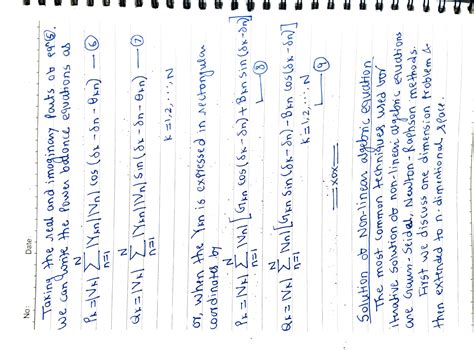 No: Date:
Taking the real and imaginary Parts of eqⁿ(5),
we can write the Power balance equations as
Pk = |Vk| N∑n=1 |Ykn||Vn| cos (δk - δn - θkn) — (6)
Qk = |Vk| N∑n=1 |Ykn||Vn| sin (δk - δn - θkn) — (7)
k = 1, 2, ..., N
or, when the Ykn is expressed in rectangular
coordinates by
Pk = |Vk| N∑n=1 |Vn| [Gkn cos (δk - δn) + Bkn sin (δk - δn)]
— (8)
Qk = |Vk| N∑n=1 |Vn| [Gkn sin (δk - δn) - Bkn cos (δk - δn)]
— (9)
k = 1, 2, ..., N
== xox ==
Solution of Non-linear algebric equation
The most common techniques used for
itnative solution of non-linear algebric equations
are Gauss-Seidal, Newton-Raphson methods.
First we discuss one dimension problem &
then extended to n-dimentional space.